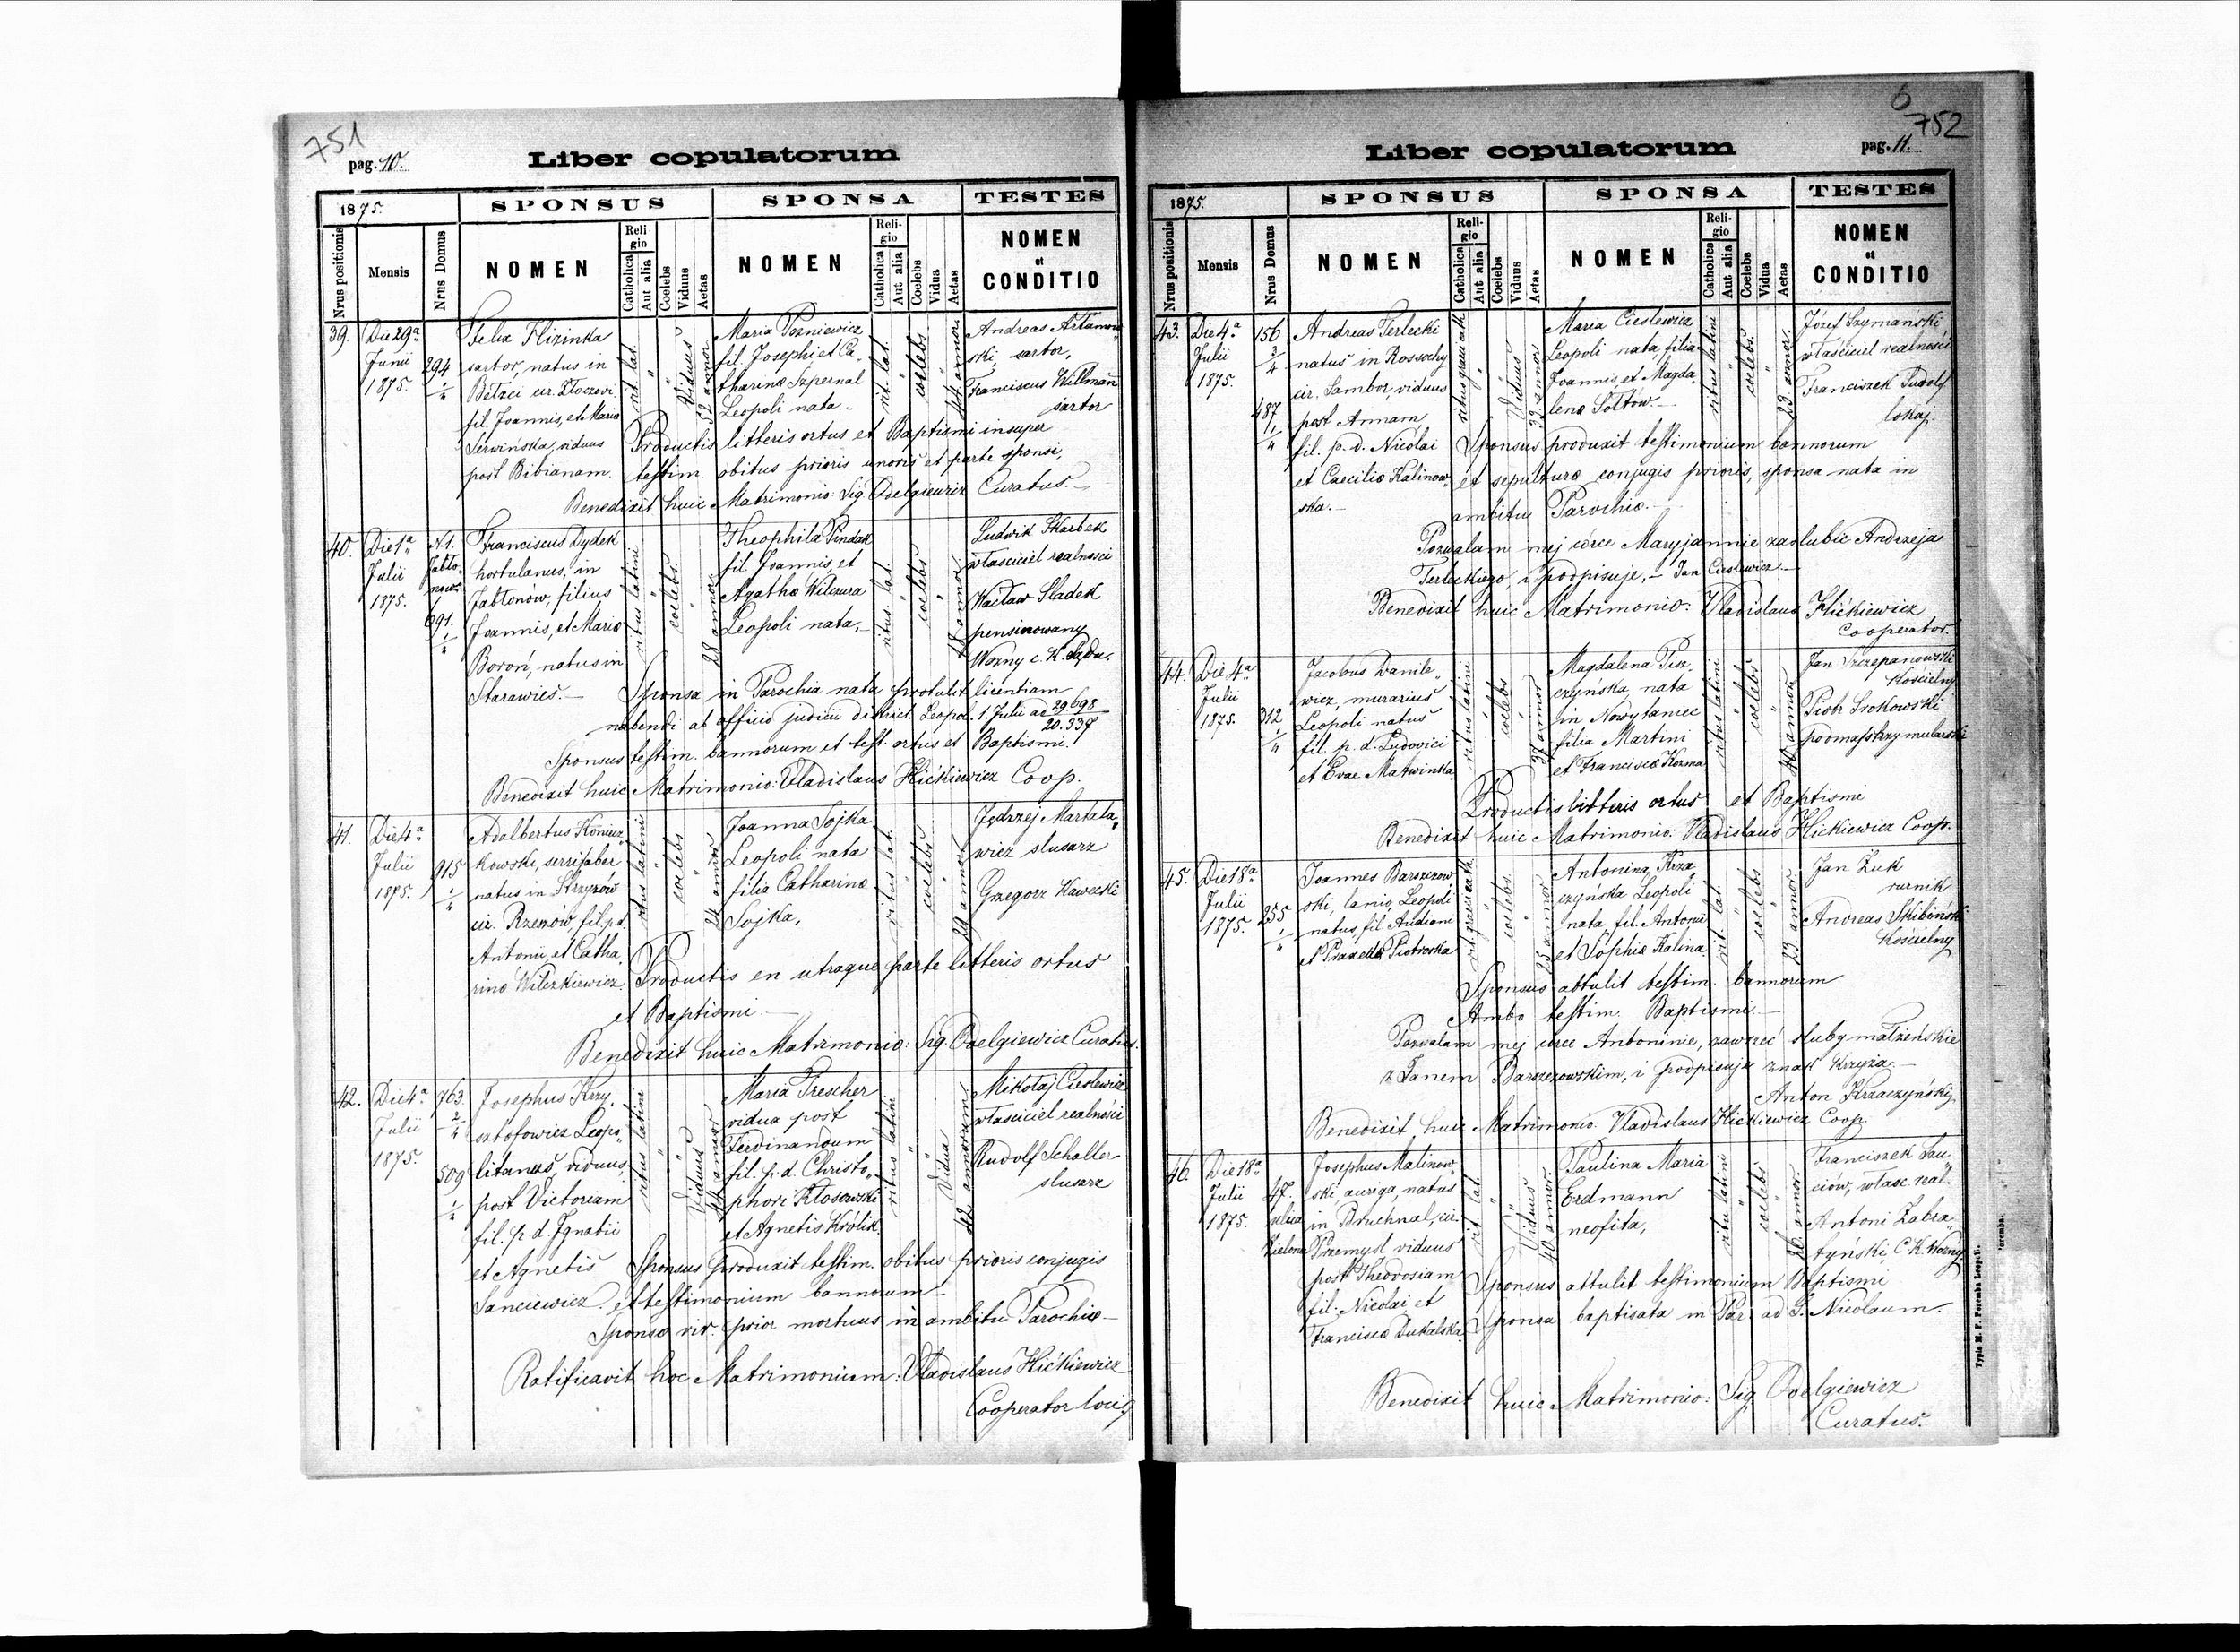 751
pag. 10.
Liber copulatorum
1875.
SPONSUS
SPONSA
TESTES
Nrus positionis
Mensis
Nrus Domus
NOMEN
Religio
Catholica
Aut alia
Coelebs
Viduus
Aetas
NOMEN
Religio
Catholica
Aut alia
Coelebs
Vidua
Aetas
NOMEN
et
CONDITIO
39.
Die 29a
Junii
1875.
294
1/4
Felix Hlizinka
sartor, natus in
Bełzci cir. Złoczovi
fil. Joannis, et Maria
Serwińska, viduus
post Bibianam.
rit. lat.
Viduus
52 annor.
Maria Pozniewicz
fil. Josephi et Ca-
tharinæ Szpernal
Leopoli nata.
rit. lat.
coelebs
44 annor.
Andreas Artamow
ski, sartor,
Franciscus Willmann
sartor
Productis litteris ortus et Baptismi insuper
testim. obitus prioris uxoris et parte sponsi,
Benedixit huic Matrimonio: Sig. Odelgiewicz Curatus.
40.
Die 1a
Julii
1875.
N. 1.
Jabło-
now
691.
1/4
Franciscus Dydek
hortulanus, in
Jabłonów, filius
Joannis, et Mariæ
Boroń, natus in
Starawies.
ritus latini
coelebs.
28 annor.
Theophila Pindak
fil Joannis, et
Agathæ Wilczura
Leopoli nata,
ritus. lat.
coelebs
18 annor.
Ludwik Skarbek
właściciel realnosci
Wacław Sladek
pensinowany
Wozny c. K. Sądu.
Sponsa in Parochia nata protulit licentiam
nubendi ab officio judicii district. Leopol. 1. Julii ad 29.698
20.337
Sponsus testim. bannorum et test. ortus et Baptismi.
Benedixit huic Matrimonio: Vladislaus Hićkiewicz Coop.
41.
Die 4a
Julii
1875.
915
1/4
Adalbertus Koniecz
kowski, serrifaber
natus in Strzyzów
cir. Rzeszów, fil. p. d.
Antonii et Catha
rinæ Wilczkiewicz.
ritus latini
coelebs
24 annor.
Joanna Sojka
Leopoli nata
filia Catharinæ
Sojka,
ritus lat.
coelebs
29 annor.
Jędrzej Martała
wicz slusarz
Grzegorz Kawecki
Productis en utraque parte litteris ortus
et Baptismi.
Benedixit huic Matrimonio: Sig Odelgiewicz Curatus.
42.
Die 4a
Julii
1875.
763.
2/4
509
1/4
Josephus Krzy-
sztofowicz Leopo-
litanus, viduus,
post Victoriam
fil. p. d. Ignatii
et Agnetis
Sanciewicz.
ritus latini
Viduus
44 annor.
Maria Trescher
vidua post
Ferdinandum
fil. p. d. Christo-
phori Kłosowski
et Agnetis Królik.
ritus latini
Vidua
42 annorum.
Mikołaj Cieslewicz
właściciel realnosci
Rudolf Schaller
slusarz
Sponsus produxit testim. obitus prioris conjugis
et testimonium bannorum
Sponsæ vir. prior mortuus in ambitu Parochiæ
Ratificavit hoc Matrimonium: Vladislaus Hićkiewicz
Cooperator loci
6
752
pag. 11.
Liber copulatorum
1875.
SPONSUS
SPONSA
TESTES
Nrus positionis
Mensis
Nrus Domus
NOMEN
Religio
Catholica
Aut alia
Coelebs
Viduus
Aetas
NOMEN
Religio
Catholica
Aut alia
Coelebs
Vidua
Aetas
NOMEN
et
CONDITIO
43.
Die 4a
Julii
1875.
156
3/4
487
1/4
Andreas Terlecki
natus in Rossochy
cir. Sambor, viduus
post Annam
fil. p. d. Nicolai
et Caeciliæ Kalinow
ska.
ritus graeci cath.
Viduus
39 annor.
Maria Cieslewicz
Leopoli nata, filia
Joannis, et Magda
lenæ Sołtow.
ritus latini
coelebs.
23 annor.
Józef Szymanski
właściciel realności
Franciszek Pudolf
lokaj.
Sponsus produxit testimonium bannorum
et sepulturæ conjugis prioris, sponsa nata in
ambitu Parochiæ.
Pozwalam mej córce Maryjannie zaslubic Andrzeja
Terleckiego, i podpisuje, Jan Cieslewicz.
Benedixit huic Matrimonio: Vladislaus Hićkiewicz
Cooperator.
44.
Die 4a
Julii
1875.
312
1/4
Jacobus Danile-
wicz, murarius
Leopoli natus
fil. p. d. Ludovici
et Evae Matwinka
ritus latini
coelebs
37 annor.
Magdalena Pisz
czyńska, nata
in Nowytaniec
filia Martini
et Franciscæ Kozma
ritus latini
coelebs
40 annor.
Jan Szczepanowski
Kościelny
Piotr Srokowski
podmajstrzy mularski
Productis litteris ortus et Baptismi
Benedixit huic Matrimonio: Vladislaus Hickiewicz Coop.
45.
Die 18a
Julii
1875.
255
1/4
Joannes Barszczow
ski, lanio, Leopoli
natus, fil. Andreæ
et Praxedæ Piotrowska
rit. graeci cath.
coelebs.
25 annor.
Antonina Krza
czyńska Leopoli
nata, fil. Antonii
et Sophiæ Kalina.
rit. lat.
coelebs
23 annor.
Jan Żuk
rurnik
Andreas Skibiński
kościelny
Sponsus attulit testim. bannorum
Ambo testim. Baptismi.
Pozwalam mej córce Antoninie, zawrzeć sluby małżeńskie
z Janem Barszczowskim, i podpisuję znak krzyża.
Anton Krzaczyński
Benedixit huic Matrimonio: Vladislaus Hickiewicz Coop.
46.
Die 18a
Julii
1875.
47.
ulica
Zielona
Josephus Malinow
ski auriga, natus
in Bruchnal, cir.
Przemysl viduus
post Theodosiam
fil. Nicolai et
Franciscæ Dukalska.
rit. lat.
Viduus
40 annor.
Paulina Maria
Erdmann
neofita,
ritus latini
coelebs
26 annor.
Franciszek Sau
ciów, własc. real.
Antoni Zabra
tyński, C. K. Wożny
Sponsus attulit testimonium Baptismi
Sponsa baptisata in Par. ad S. Nicolaum.
Benedixit huic Matrimonio: Sig Odelgiewicz
Curatus.
Typis M. F. Poremba Leopoli.